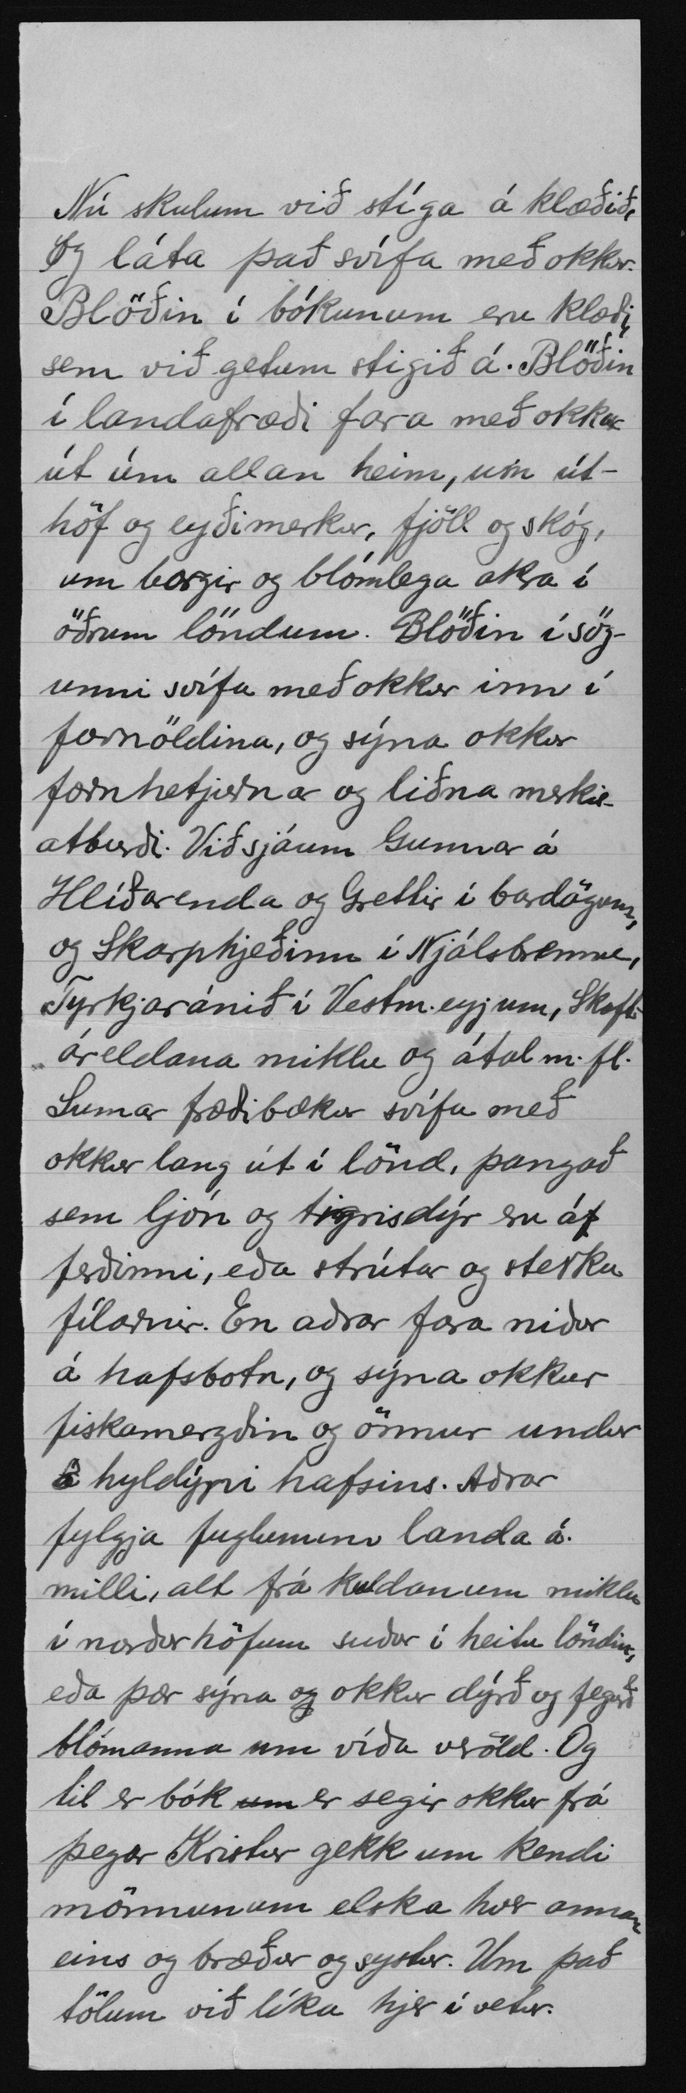 Nú skulum við stíga á klæðið,
Og láta það svífa með okkur.
Blöðin í bókunum eru klæði,
sem við getum stigið á. Blöðin
í landafræði fara með okkur
út úm allan heim, um út-
höf og eyðimerkur, fjöll og skóg,
um borgir og blómlega akra í
öðrum löndum. Blöðin í sög-
unni svífa með okkur inn í
fornöldina, og sýna okkur
fornhetjurnar og liðna merkis-
atburði. Við sjáum Gunnar á
Hlíðarenda og Grettir í bardögum,
og Skarphjeðinn í Njálsbrennu,
Tyrkjaránið í Vestm.eyjum, Skaft-
áreldana miklu og átal m. fl.
Sumar fræðibækur svífa með
okkur lang út í lönd, þangað
sem ljón og tigrisdýr eru á
ferðinni, eða strútar og sterku
fílarnir. En aðrar fara niður
á hafsbotn, og sýna okkur
fiskamergðin og önnur undur
í hyldýpi hafsins. Aðrar
fylgja fuglunum landa á
milli, alt frá kuldanum miklu
í norðurhöfum suður í heitu löndin,
eða þær sýna og okkur dýrð og fegurð
blómanna um víða veröld. Og
til er bók um er segir okkur frá
þegar Kristur gekk um kendi
mönnunum elska hver annan
eins og bræður og systur. Um það
tölum við líka hjer í vetur.